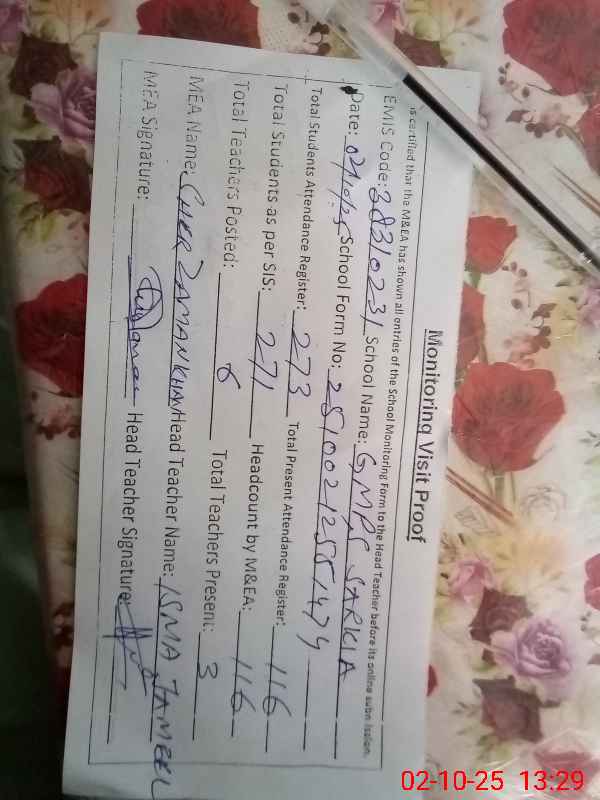 Monitoring Visit Proof
is certified that the M&EA has shown all entries of the School Monitoring Form to the Head Teacher before its online submission.
EMIS Code: 38310231 School Name: GMPS SARKIA
Date: School Form No:
Total Students Attendance Register: 273 Total Present Attendance Register: 116
Total Students as per SIS: 271 Headcount by M&EA: 116
Total Teachers Posted: 6 Total Teachers Present: 3
MEA Name: SHER ZAMAN KHAN Head Teacher Name: ISMA JAMEEL
MEA Signature: Head Teacher Signature:
02-10-25 13:29